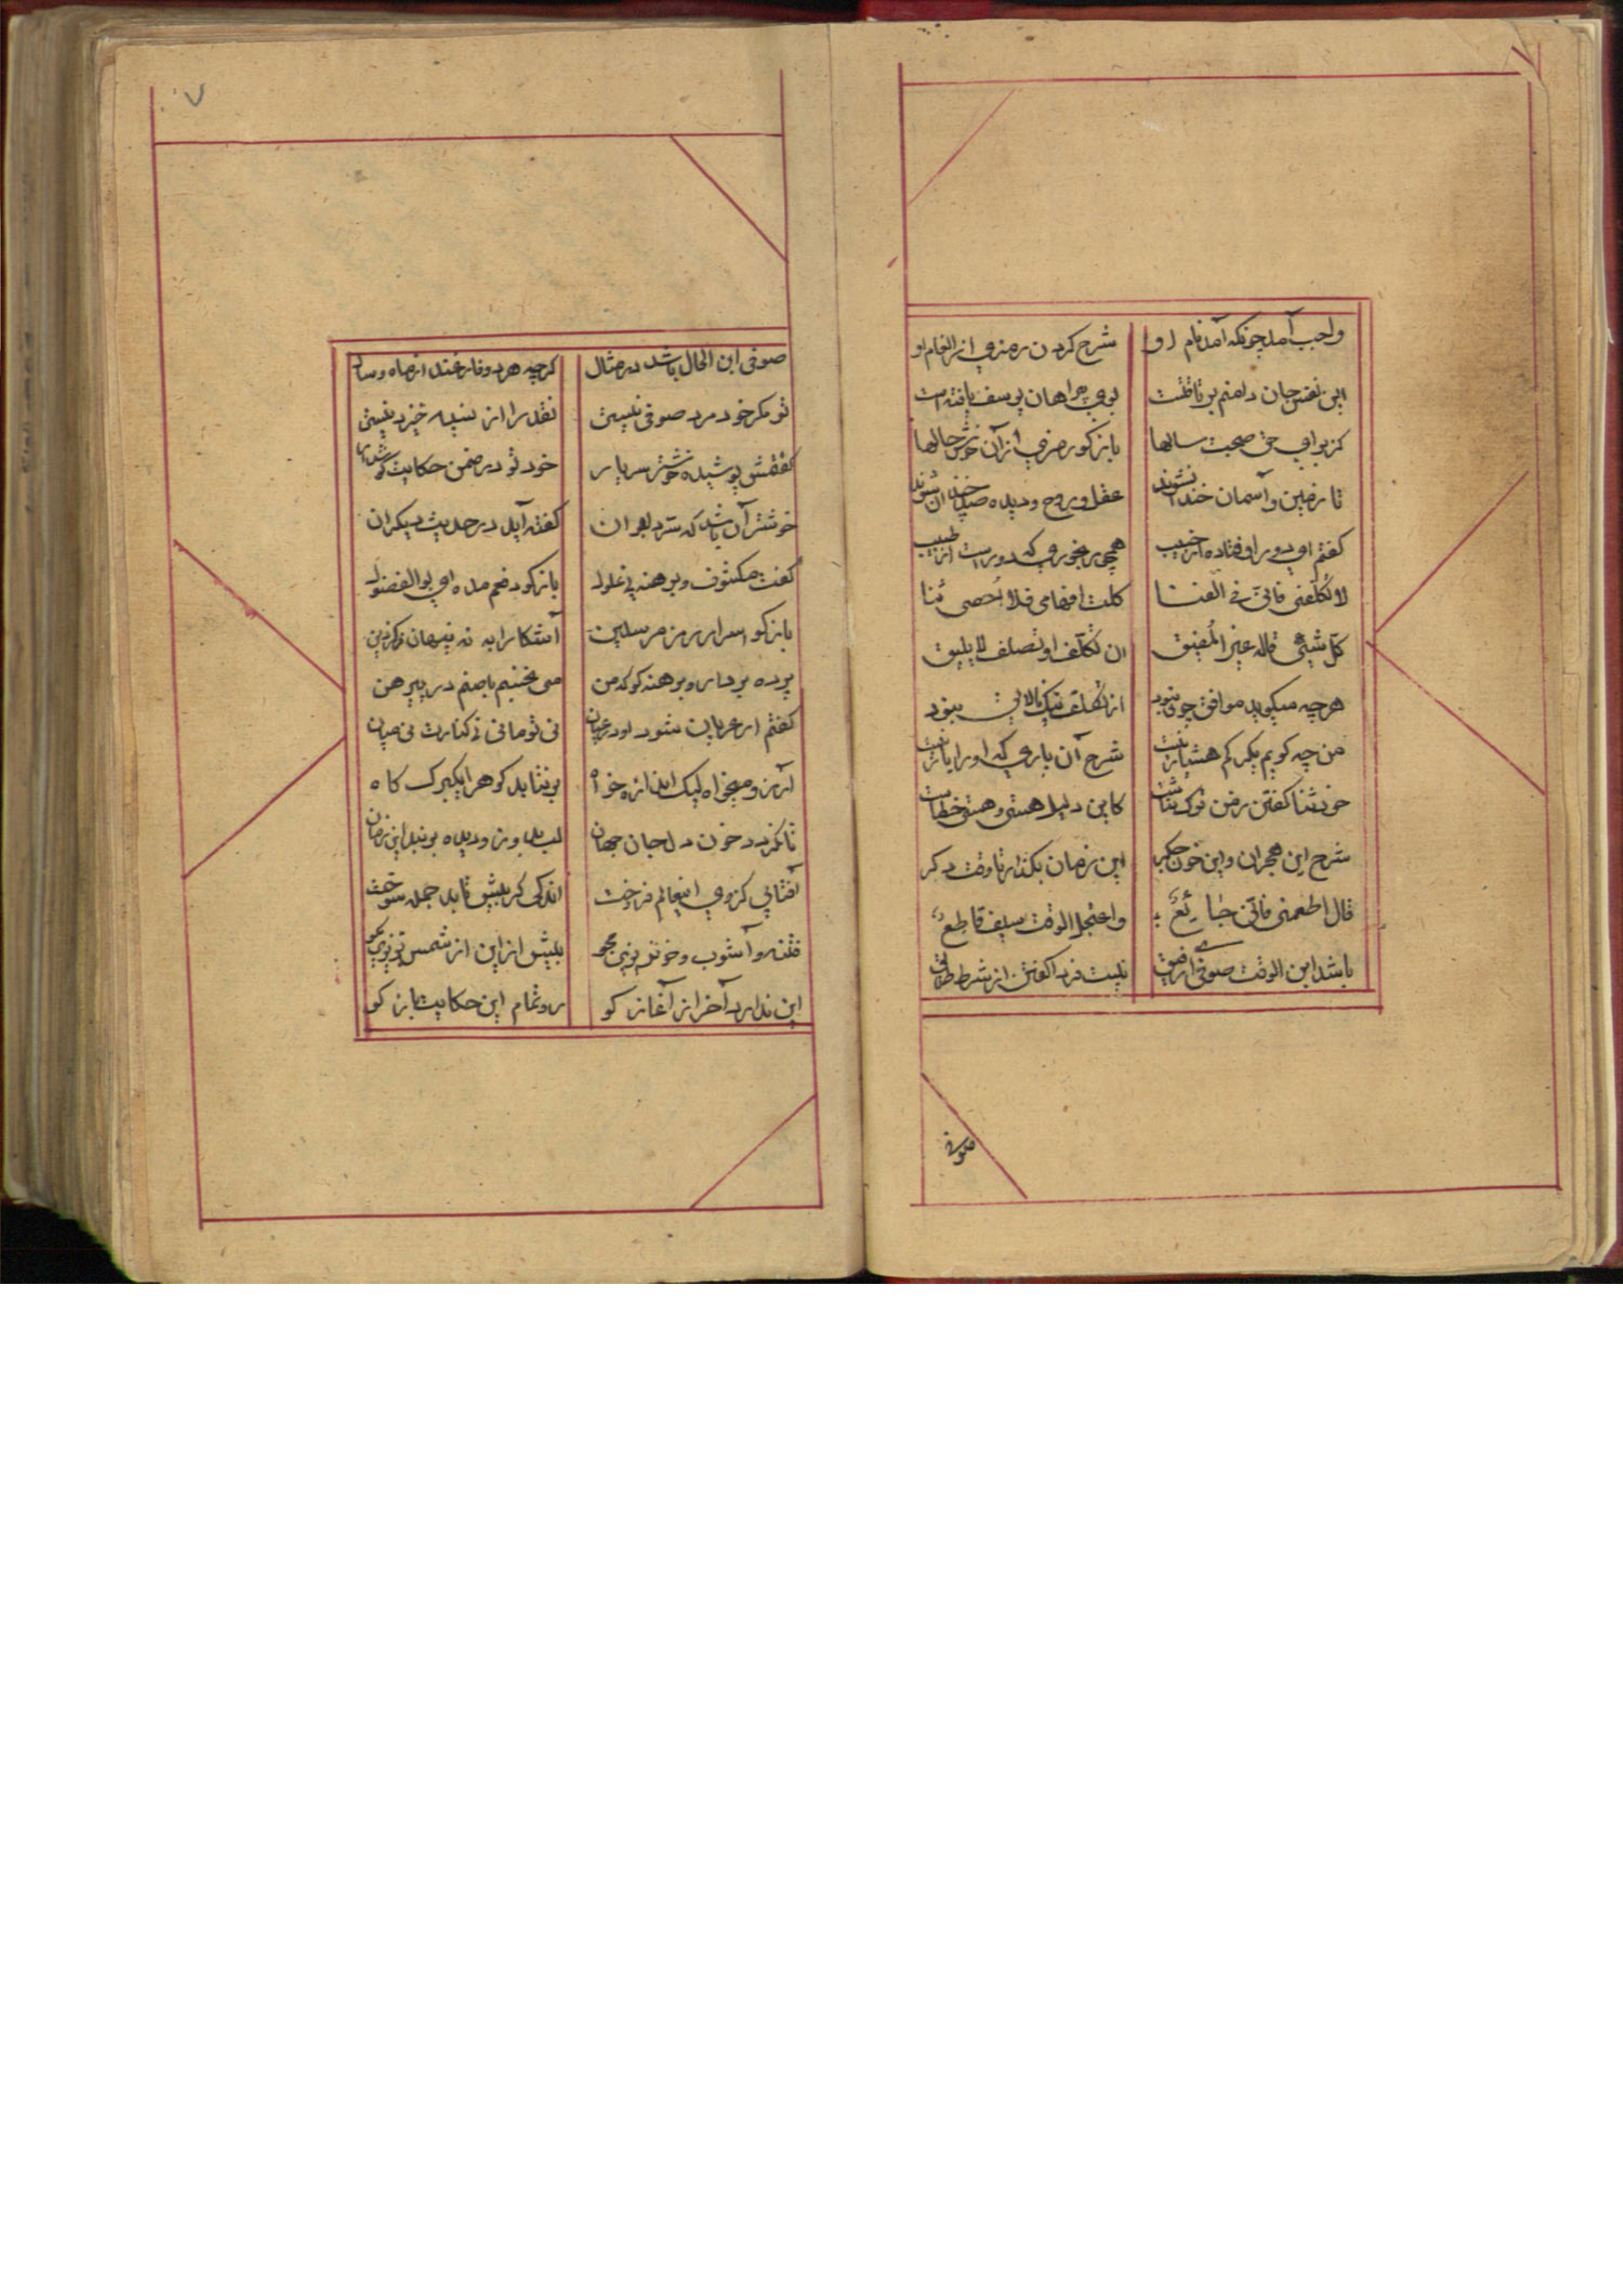 واجب آمد چونکه آمد نام او
شرح کردن رمزی از انعام او
این نفس جان دامنم بر تافتست
بوی پیراهان یوسف یافته است
کز برای حق صحبت سالها
بازگو رمزی از آن خوش حالها
تا زمین و آسمان خندان شوند
عقل و روح و دیده صد چندان شوند
گفتم ای دور اوفتاده از حبیب
همچو رنجوری که دور است از طبیب
لا تُکلّفنی فانّی فی الفنا
کلّت افهامی فلا اُحصی ثنا
کلّ شیئیٍ قاله غیر المُفیق
ان تکلّف او تصلف لا یلیق
هرچه میگوید موافق چون نبود
از تکلف نیک نالایق نمود
من چه گویم یک رگم هشیار نیست
شرح آن یاری که او را یار نیست
خود ثنا گفتن ز من ترک ثناست
کاین دلیل هستی و هستی خطاست
شرح این هجران و این خون جگر
این زمان بگذار تا وقت دگر
قال اطعمنی فانّی جٰائعٌ
و اعتجل الوقت سیف قاطعٌ
باشد ابن الوقت صوفی ای رفیق
نیست فردا گفتن از شرط طریق
صوفی
۷
صوفی ابن الحال باشد در مثال
گرچه هر دو فارغند از ماه و سال
تو مگر خود مرد صوفی نیستی
نقد را از نسیه خیزد نیستی
گفتمش پوشیده خوشتر سر یار
خود تو در ضمن حکایت گوش دار
خوشتر آن باشد که سرّ دلبران
گفته آید در حدیث دیگران
گفت مکشوف و برهنه بی غلول
بازگو دفعم مده ای بوالفضول
بازگو اسرار و رمز مرسلین
آشکارا به که پنهان ذکر دین
پرده بردار و برهنه گو که من
می نخسبم با صنم در پیرهن
گفتم ار عریان شود او در عیان
نی تو مانی نی کنارت نی میان
آرزو میخواه لیک اندازه خواه
بر نتابد کوه را یک برگ کاه
تا نگردد خون دل جان جهان
لب بدوز و دیده بر بند این زمان
آفتابی کز وی این عالم فروخت
اندکی گر بیش تابد جمله سوخت
فتنه و آشوب و خونریزی مجو
بیش از این از شمس تبریزی مگو
این ندارد آخر از آغاز گو
رو تمام این حکایت باز گو